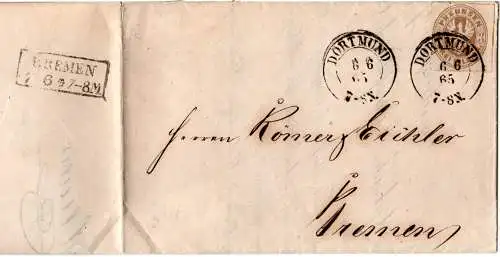 BREMEN
7 6 * 7-8 M
DORTMUND
6 6
65
7-8 N.
DORTMUND
6 6
65
7-8 N.
PREUSSEN
Herren Römer & Eichler
Bremen